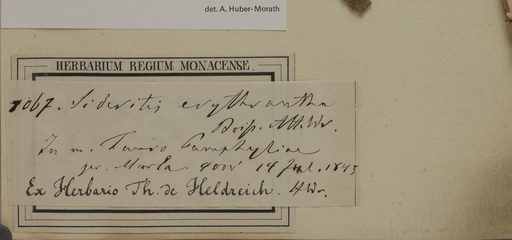 det. A. Huber-Morath
HERBARIUM REGIUM MONACENSE.
1067. Sideritis erythrantha
Boiss. &
In m. Tauro Pamphyliae
pr. Marla. 4000' 14 Jul. 1845
Ex Herbario Th. de Heldreich.